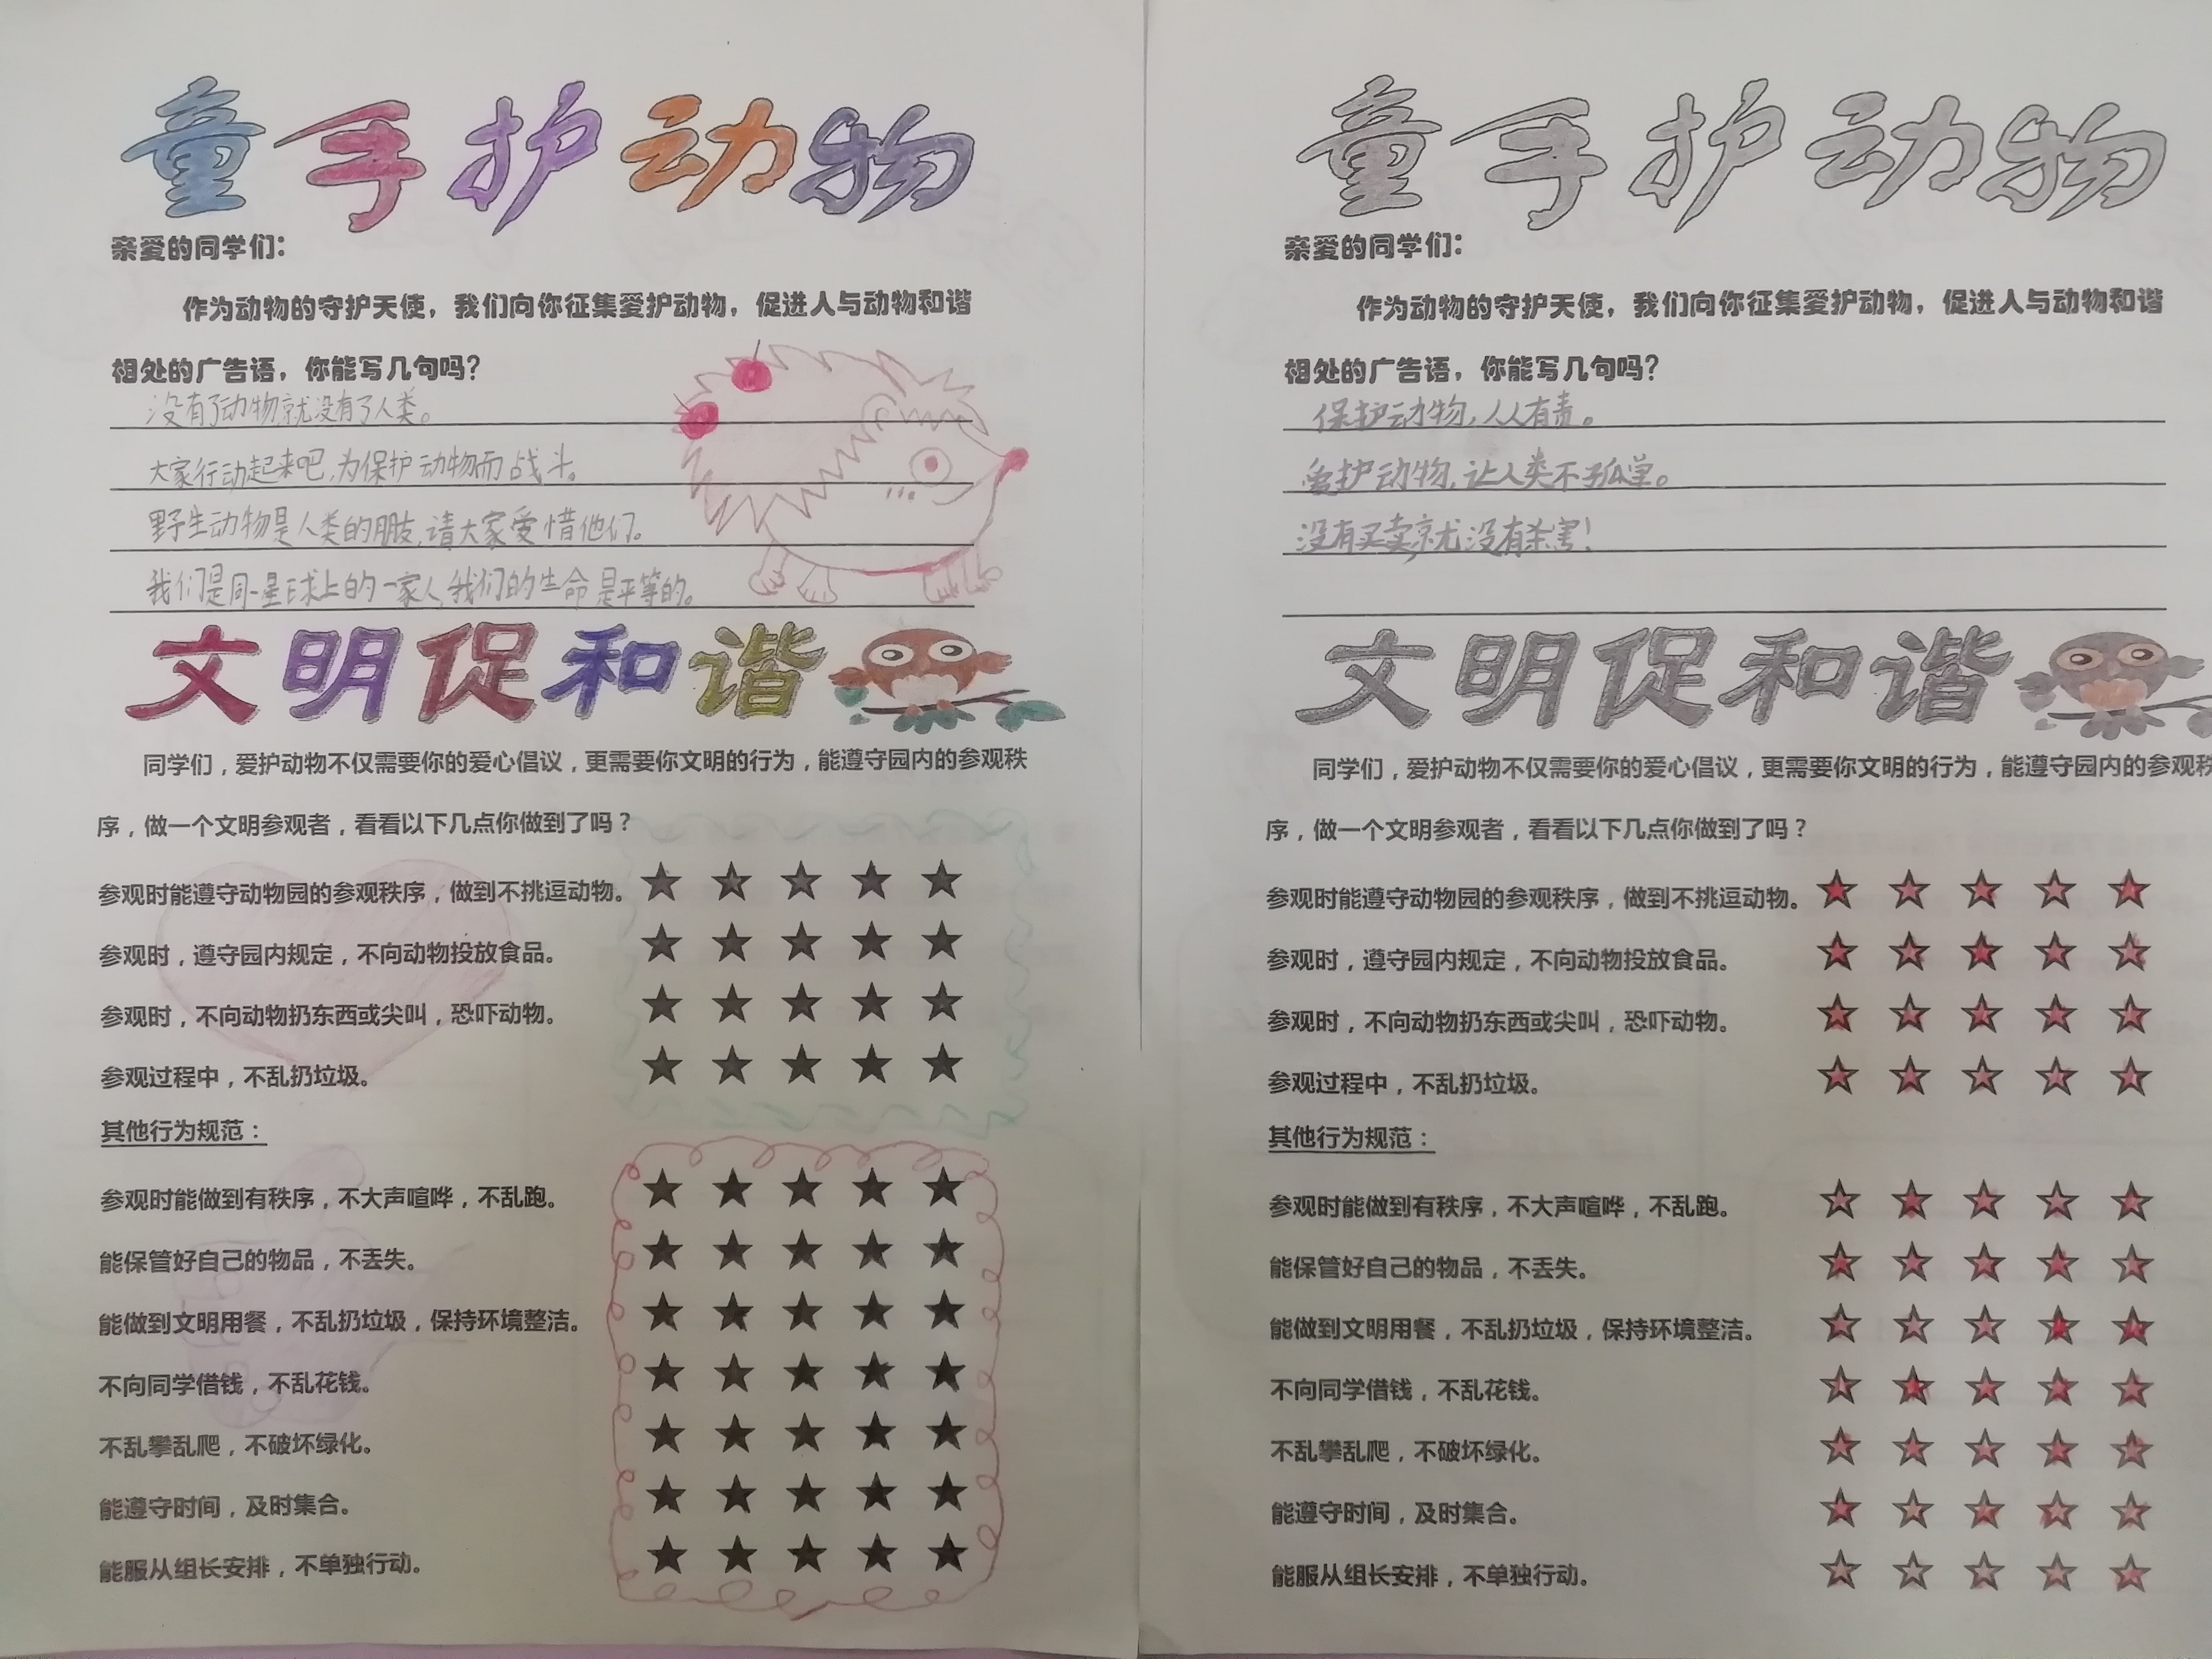 童手护动物
亲爱的同学们：
作为动物的守护天使，我们向你征集爱护动物，促进人与动物和谐
相处的广告语，你能写几句吗？
没有了动物就没有了人类。
大家行动起来吧，为保护动物而战斗。
野生动物是人类的朋友，请大家爱惜他们。
我们是同一星球上的一家人，我们的生命是平等的。
文明促和谐
同学们，爱护动物不仅需要你的爱心倡议，更需要你文明的行为，能遵守园内的参观秩
序，做一个文明参观者，看看以下几点你做到了吗？
参观时能遵守动物园的参观秩序，做到不挑逗动物。★ ★ ★ ★ ★
参观时，遵守园内规定，不向动物投放食品。★ ★ ★ ★ ★
参观时，不向动物扔东西或尖叫，恐吓动物。★ ★ ★ ★ ★
参观过程中，不乱扔垃圾。★ ★ ★ ★ ★
其他行为规范：
参观时能做到有秩序，不大声喧哗，不乱跑。★ ★ ★ ★ ★
能保管好自己的物品，不丢失。★ ★ ★ ★ ★
能做到文明用餐，不乱扔垃圾，保持环境整洁。★ ★ ★ ★ ★
不向同学借钱，不乱花钱。★ ★ ★ ★ ★
不乱攀乱爬，不破坏绿化。★ ★ ★ ★ ★
能遵守时间，及时集合。★ ★ ★ ★ ★
能服从组长安排，不单独行动。★ ★ ★ ★ ★
童手护动物
亲爱的同学们：
作为动物的守护天使，我们向你征集爱护动物，促进人与动物和谐
相处的广告语，你能写几句吗？
保护动物，人人有责。
爱护动物，让人类不孤单。
没有买卖，就没有杀害！
文明促和谐
同学们，爱护动物不仅需要你的爱心倡议，更需要你文明的行为，能遵守园内的参观秩
序，做一个文明参观者，看看以下几点你做到了吗？
参观时能遵守动物园的参观秩序，做到不挑逗动物。☆ ☆ ☆ ☆ ☆
参观时，遵守园内规定，不向动物投放食品。☆ ☆ ☆ ☆ ☆
参观时，不向动物扔东西或尖叫，恐吓动物。☆ ☆ ☆ ☆ ☆
参观过程中，不乱扔垃圾。☆ ☆ ☆ ☆ ☆
其他行为规范：
参观时能做到有秩序，不大声喧哗，不乱跑。☆ ☆ ☆ ☆ ☆
能保管好自己的物品，不丢失。☆ ☆ ☆ ☆ ☆
能做到文明用餐，不乱扔垃圾，保持环境整洁。☆ ☆ ☆ ☆ ☆
不向同学借钱，不乱花钱。☆ ☆ ☆ ☆ ☆
不乱攀乱爬，不破坏绿化。☆ ☆ ☆ ☆ ☆
能遵守时间，及时集合。☆ ☆ ☆ ☆ ☆
能服从组长安排，不单独行动。☆ ☆ ☆ ☆ ☆